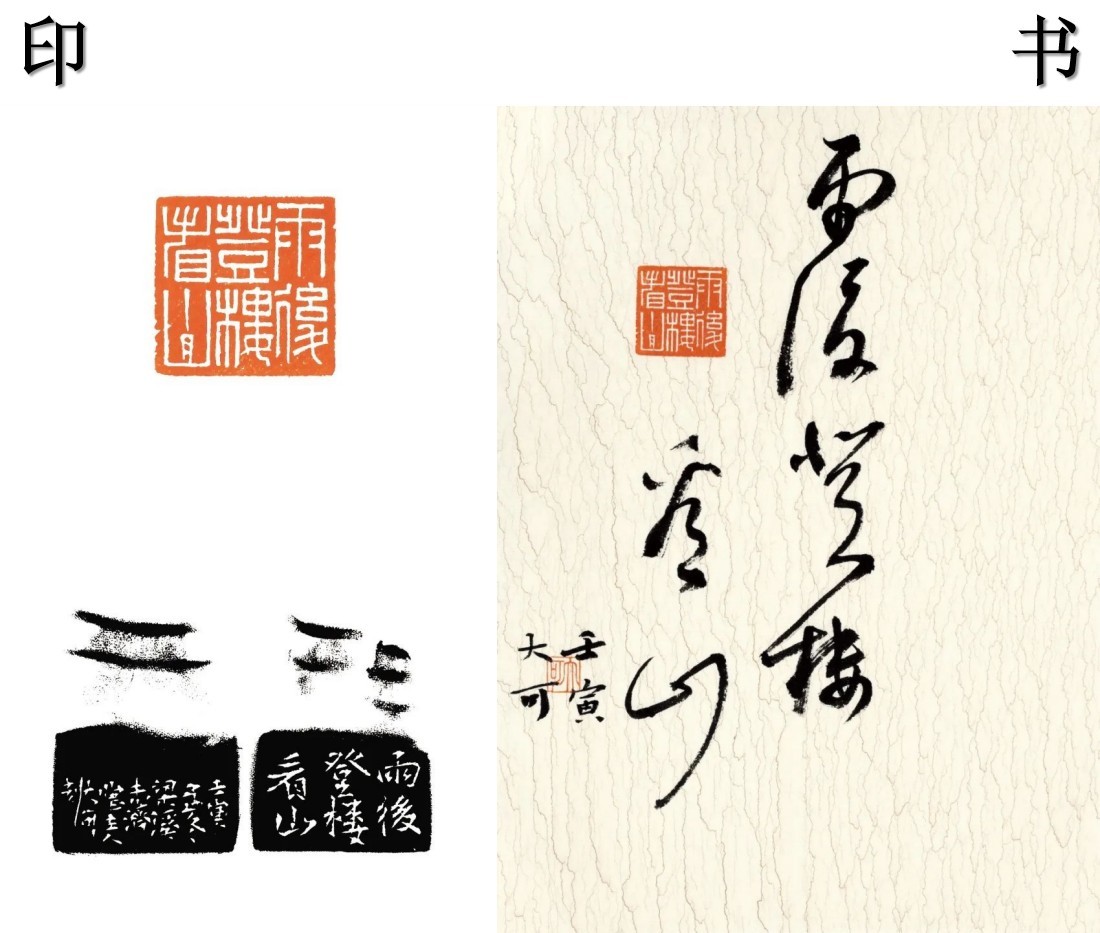 印
书
雨後
登樓
看山
雨後
登樓
看山
壬寅
大可
雨後
登樓
看山
雨後
登樓
看山
壬寅